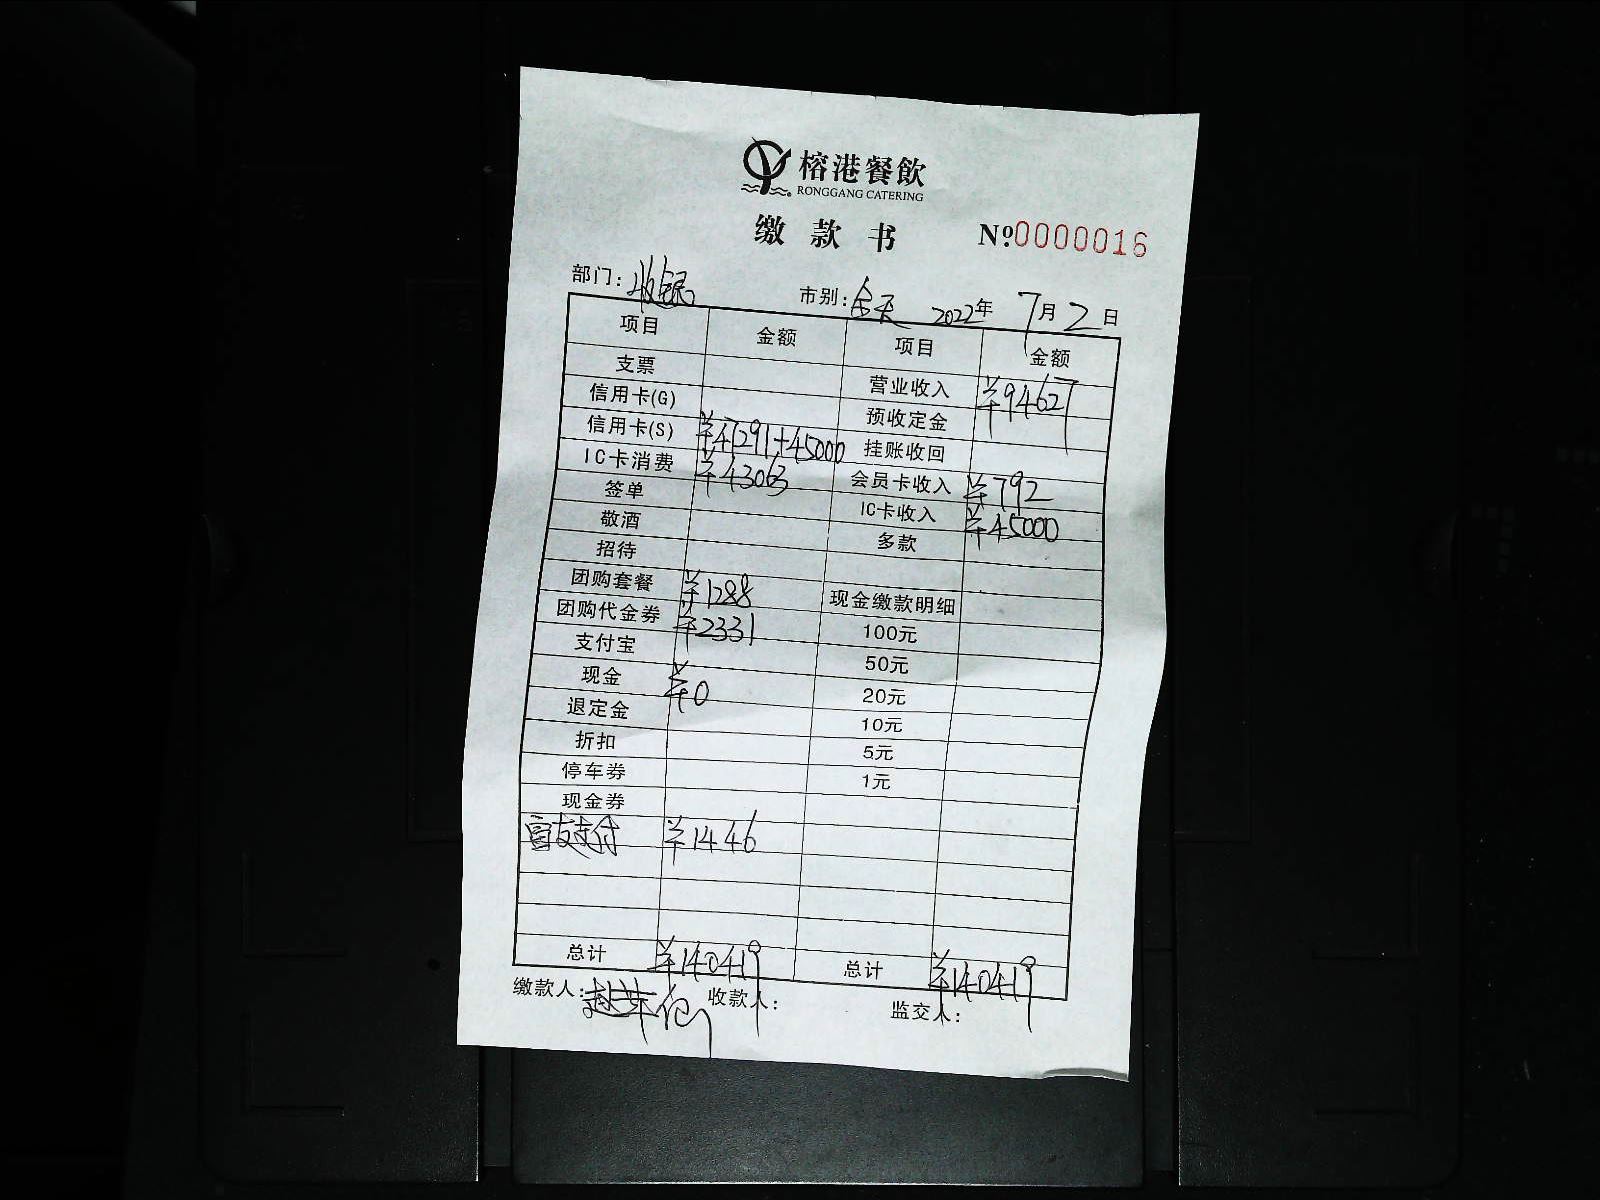 榕港餐飲
RONGGANG CATERING
缴款书 №0000016
部门:收银 市别:全天 2022年 7月2日
项目 金额 项目 金额
支票 营业收入 ¥94627
信用卡(G) 预收定金
信用卡(S) ¥47291+45000 挂账收回
IC卡消费 ¥43063 会员卡收入 ¥792
签单 IC卡收入 ¥45000
敬酒 多款
招待
团购套餐 ¥1288 现金缴款明细
团购代金券 ¥2331 100元
支付宝 50元
现金 ¥0 20元
退定金 10元
折扣 5元
停车券 1元
现金券
富友支付 ¥1446
总计 ¥140419 总计 ¥140419
缴款人: 收款人: 监交人: